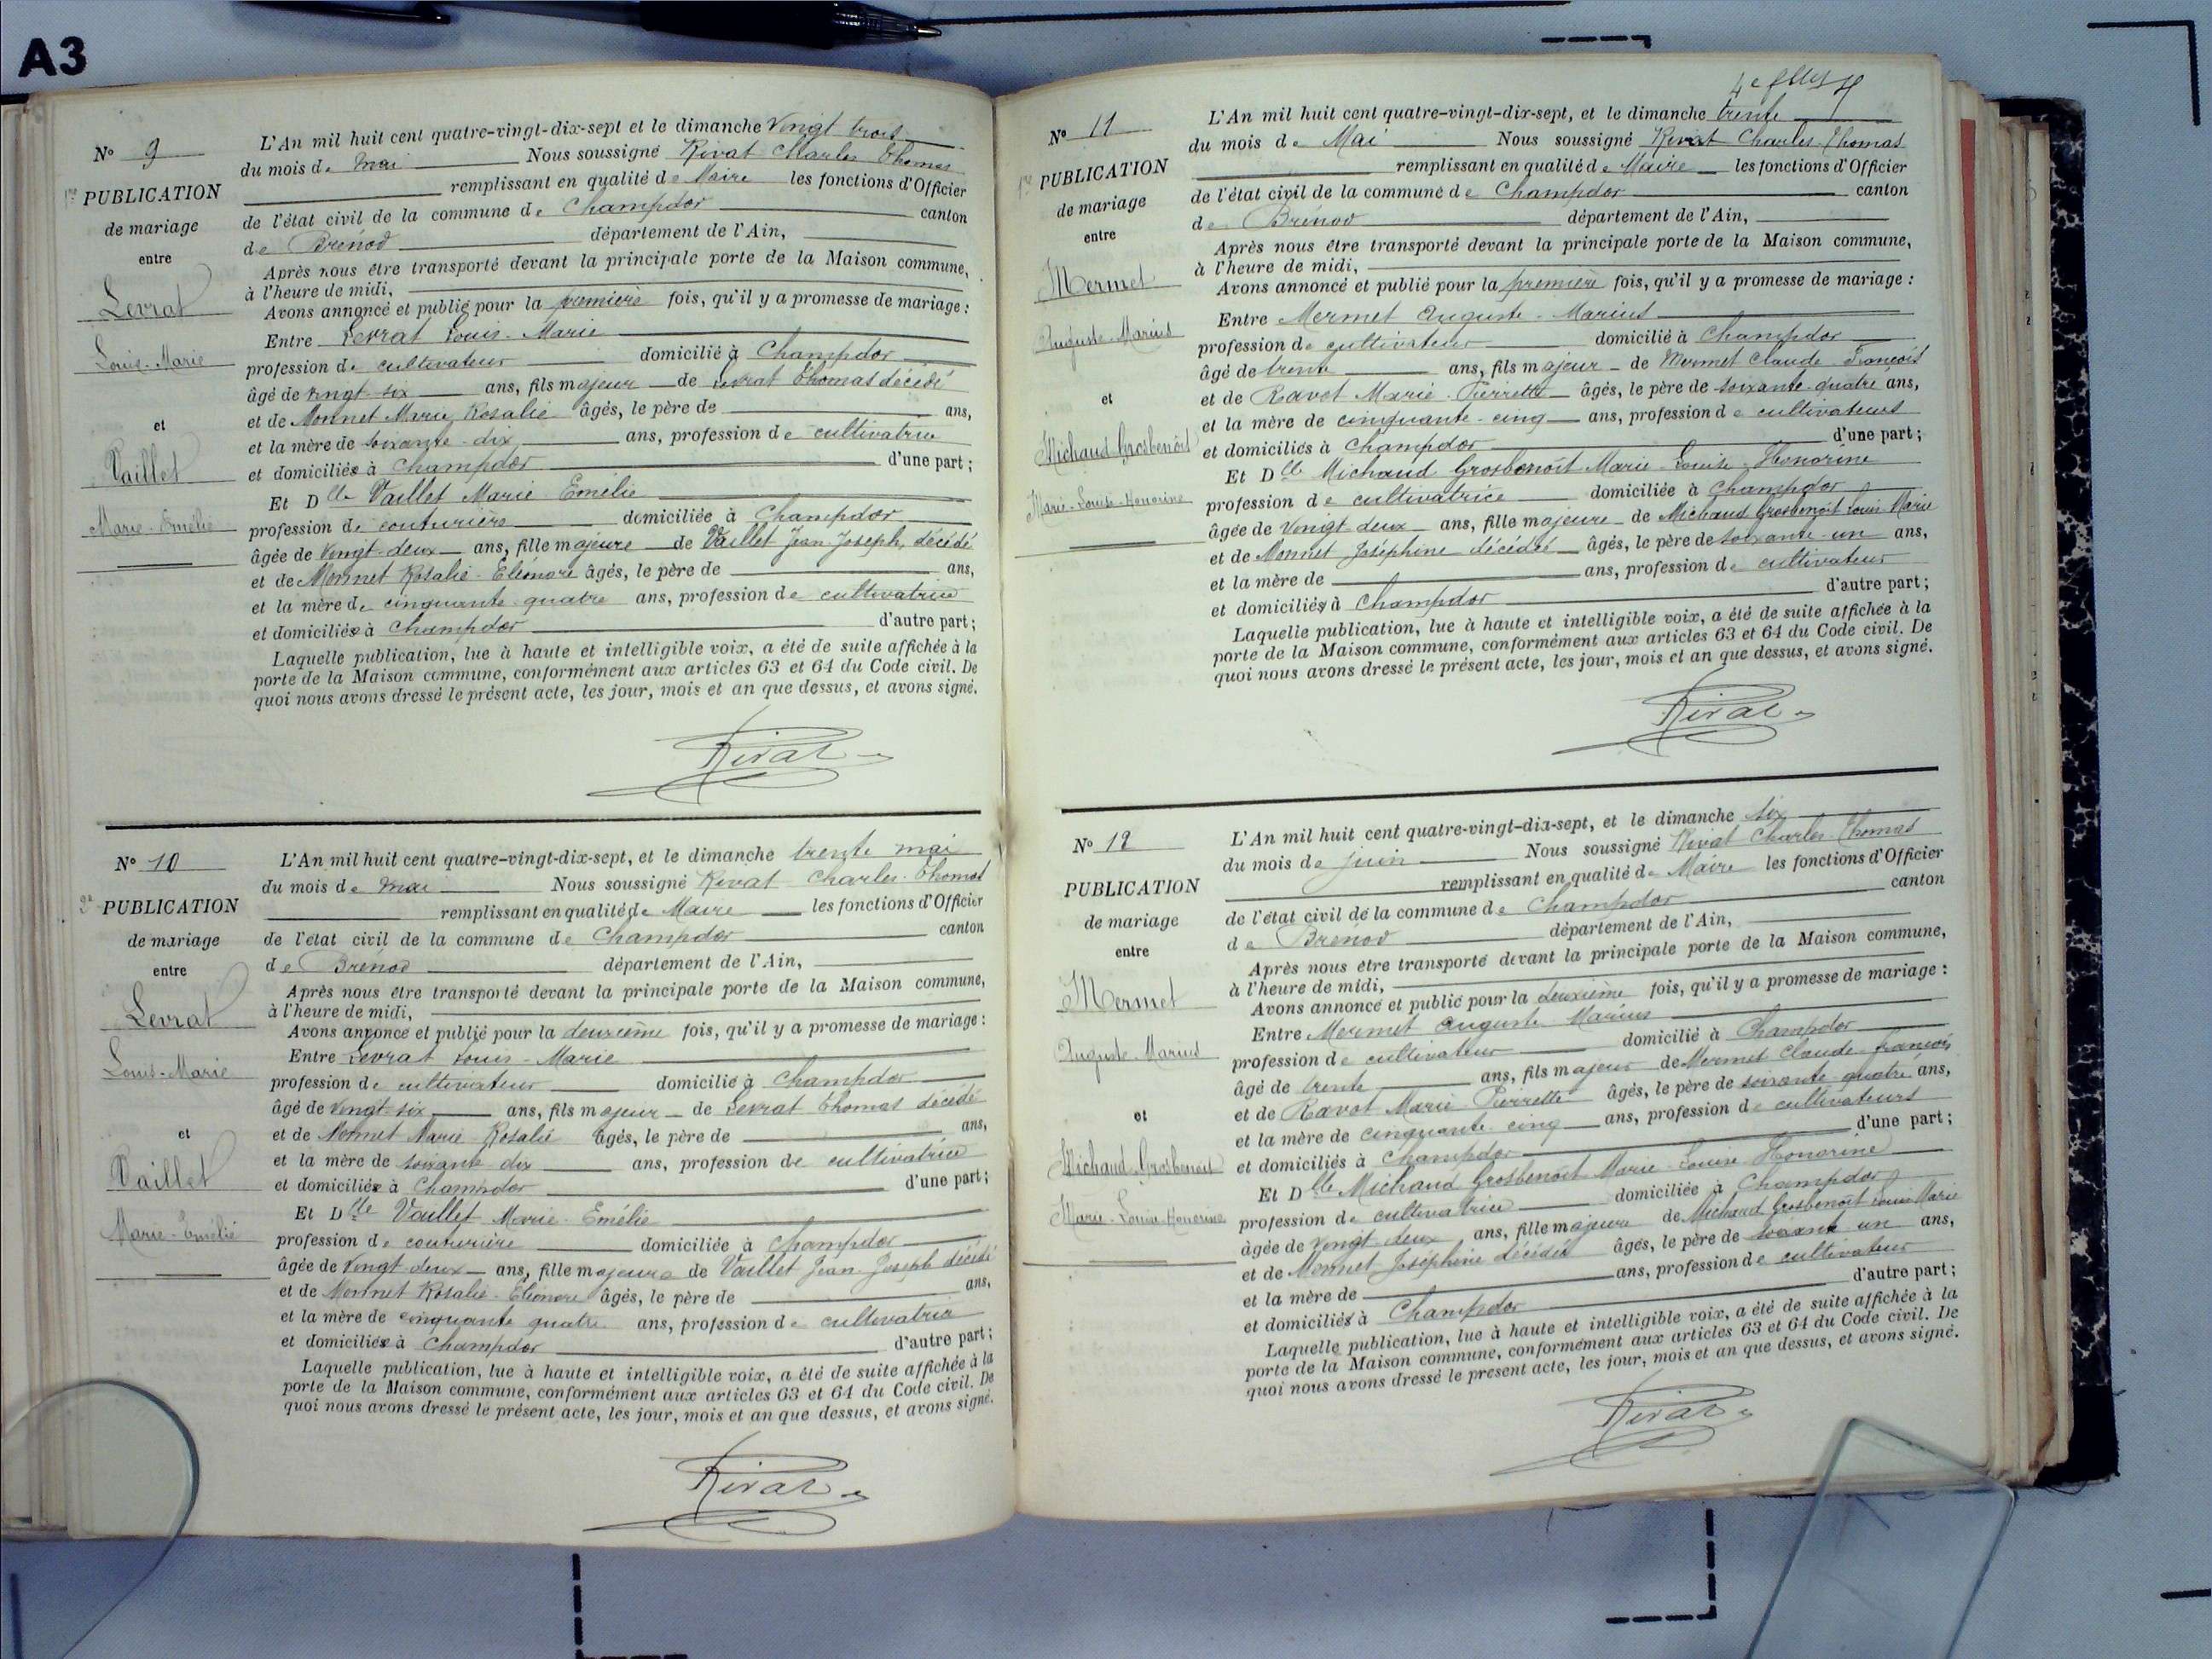 A3
N° 9
1re PUBLICATION
de mariage
entre
Levrat
Louis-Marie
et
Vaillet
Marie-Emélie
L'An mil huit cent quatre-vingt-dix-sept et le dimanche Vingt trois
du mois de Mai Nous soussigné Rivat Charles Thomas
remplissant en qualité de Maire les fonctions d'Officier
de l'état civil de la commune de Champdor canton
de Brénod département de l'Ain,
Après nous être transporté devant la principale porte de la Maison commune,
à l'heure de midi,
Avons annoncé et publié pour la première fois, qu'il y a promesse de mariage :
Entre Levrat Louis-Marie
profession de cultivateur domicilié à Champdor
âgé de vingt-six ans, fils majeur de Levrat Thomas décédé
et de Monnet Marie Rosalie âgés, le père de ans,
et la mère de soixante-dix ans, profession de cultivatrice
et domiciliés à Champdor d'une part ;
Et Dlle Vaillet Marie Emélie
profession de couturière domiciliée à Champdor
âgée de Vingt-deux ans, fille majeure de Vaillet Jean-Joseph, décédé
et de Monnet Rosalie-Eléonore âgés, le père de ans,
et la mère de cinquante quatre ans, profession de cultivatrice
et domiciliés à Champdor d'autre part ;
Laquelle publication, lue à haute et intelligible voix, a été de suite affichée à la
porte de la Maison commune, conformément aux articles 63 et 64 du Code civil. De
quoi nous avons dressé le présent acte, les jour, mois et an que dessus, et avons signé.
Rivat
N° 10
2e PUBLICATION
de mariage
entre
Levrat
Louis-Marie
et
Vaillet
Marie-Emélie
L'An mil huit cent quatre-vingt-dix-sept, et le dimanche trente mai
du mois de Mai Nous soussigné Rivat Charles-Thomas
remplissant en qualité de Maire les fonctions d'Officier
de l'état civil de la commune de Champdor canton
de Brénod département de l'Ain,
Après nous être transporté devant la principale porte de la Maison commune,
à l'heure de midi,
Avons annoncé et publié pour la deuxième fois, qu'il y a promesse de mariage :
Entre Levrat Louis-Marie
profession de cultivateur domicilié à Champdor
âgé de Vingt-six ans, fils majeur de Levrat Thomas décédé
et de Monnet Marie-Rosalie âgés, le père de ans,
et la mère de soixante dix ans, profession de cultivatrice
et domiciliés à Champdor d'une part ;
Et Dlle Vaillet Marie-Emélie
profession de couturière domiciliée à Champdor
âgée de Vingt-deux ans, fille majeure de Vaillet Jean-Joseph décédé
et de Monnet Rosalie-Eléonore âgés, le père de ans,
et la mère de cinquante quatre ans, profession de cultivatrice
et domiciliés à Champdor d'autre part ;
Laquelle publication, lue à haute et intelligible voix, a été de suite affichée à la
porte de la Maison commune, conformément aux articles 63 et 64 du Code civil. De
quoi nous avons dressé le présent acte, les jour, mois et an que dessus, et avons signé.
Rivat
N° 11
1re PUBLICATION
de mariage
entre
Mermet
Auguste-Marius
et
Michaud Grosbenoît
Marie-Louise-Honorine
L'An mil huit cent quatre-vingt-dix-sept, et le dimanche trente
du mois de Mai Nous soussigné Rivat Charles-Thomas
remplissant en qualité de Maire les fonctions d'Officier
de l'état civil de la commune de Champdor canton
de Brénod département de l'Ain,
Après nous être transporté devant la principale porte de la Maison commune,
à l'heure de midi,
Avons annoncé et publié pour la première fois, qu'il y a promesse de mariage :
Entre Mermet Auguste-Marius
profession de cultivateur domicilié à Champdor
âgé de trente ans, fils majeur de Mermet Claude François
et de Ravot Marie-Pierrette âgés, le père de soixante-quatre ans,
et la mère de cinquante-cinq ans, profession de cultivateurs
et domiciliés à Champdor d'une part ;
Et Dlle Michaud Grosbenoît Marie-Louise-Honorine
profession de cultivatrice domiciliée à Champdor
âgée de Vingt deux ans, fille majeure de Michaud Grosbenoît Louis-Marie
et de Monnet Joséphine décédée âgés, le père de soixante-un ans,
et la mère de ans, profession de cultivateur
et domiciliés à Champdor d'autre part ;
Laquelle publication, lue à haute et intelligible voix, a été de suite affichée à la
porte de la Maison commune, conformément aux articles 63 et 64 du Code civil. De
quoi nous avons dressé le présent acte, les jour, mois et an que dessus, et avons signé.
Rivat
N° 12
PUBLICATION
de mariage
entre
Mermet
Auguste-Marius
et
Michaud-Grosbenoît
Marie-Louise-Honorine
L'An mil huit cent quatre-vingt-dix-sept, et le dimanche six
du mois de juin Nous soussigné Rivat Charles-Thomas
remplissant en qualité de Maire les fonctions d'Officier
de l'état civil de la commune de Champdor canton
de Brénod département de l'Ain,
Après nous être transporté devant la principale porte de la Maison commune,
à l'heure de midi,
Avons annoncé et publié pour la deuxième fois, qu'il y a promesse de mariage :
Entre Mermet Auguste Marius
profession de cultivateur domicilié à Champdor
âgé de trente ans, fils majeur de Mermet Claude-françois
et de Ravot Marie Pierrette âgés, le père de soixante-quatre ans,
et la mère de cinquante-cinq ans, profession de cultivateurs
et domiciliés à Champdor d'une part ;
Et Dlle Michaud Grosbenoît Marie-Louise-Honorine
profession de cultivatrice domiciliée à Champdor
âgée de vingt-deux ans, fille majeure de Michaud Grosbenoît Louis Marie
et de Monnet Joséphine décédée âgés, le père de soixante un ans,
et la mère de ans, profession de cultivateur
et domiciliés à Champdor d'autre part ;
Laquelle publication, lue à haute et intelligible voix, a été de suite affichée à la
porte de la Maison commune, conformément aux articles 63 et 64 du Code civil. De
quoi nous avons dressé le présent acte, les jour, mois et an que dessus, et avons signé.
Rivat